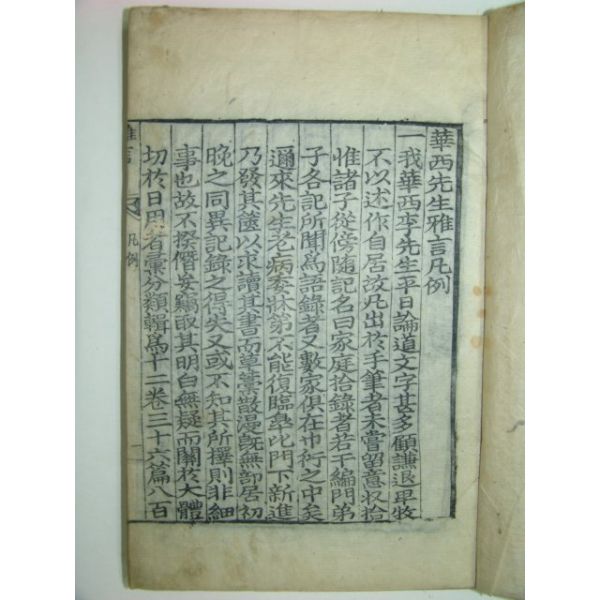 華西先生雅言凡例
一我華西李先生平日論道文字甚多顧謙退卑牧
不以述作自居故凡出於手筆者未嘗留意収拾
惟諸子從傍隨記名曰家庭拾錄者若干編門弟
子各記所聞爲語錄者又數家俱在巾衍之中矣
邇來先生老病委牀第不能復臨臯比門下新進
乃發其篋以求讀其書而草藁散漫旣無部居初
晩之同異記錄之得失又或不知其所擇則非細
事也故不揆僭妄竊取其明白無疑而關於大體
切於日用者彙分類輯爲十二卷三十六篇八百
雅言
凡例
一